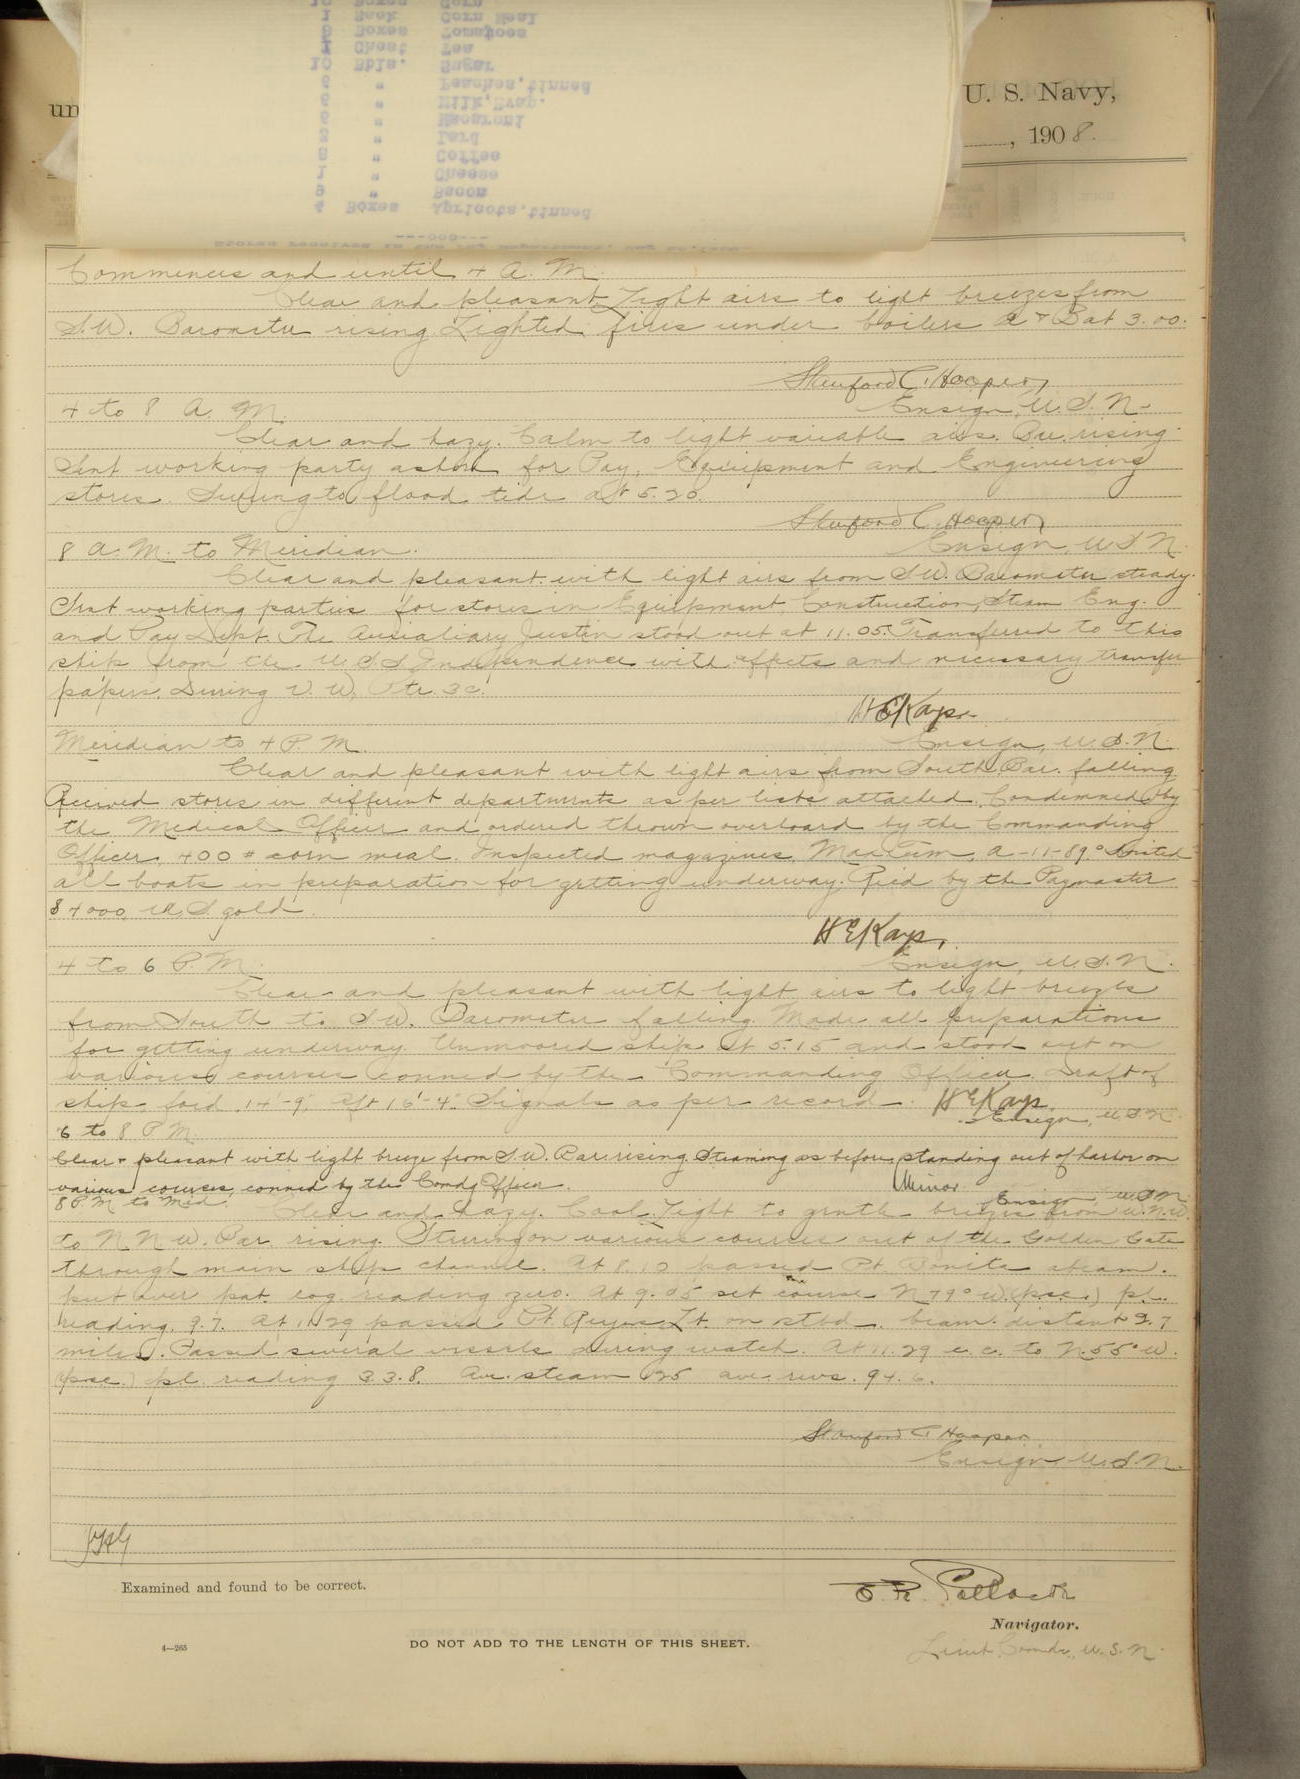 10 Boxes Corn
1 Sack Corn Meal
6 Boxes Tomatoes
1 Chest Tea
10 Bbls. Sugar
6 " Peaches, tinned
6 " Milk, Evap.
6 " Macaroni
2 " Lard
8 " Coffee
1 " Cheese
5 " Bacon
4 Boxes Apricots, tinned
---ooo---
un
U. S. Navy,
, 1908.
Commences and until 4 A. M.
Clear and pleasant. Light airs to light breezes from
S.W. Barometer rising. Lighted fires under boilers A & B at 3.00.
Stanford C. Hooper,
4 to 8 A. M.
Ensign, U.S.N.
Clear and hazy. Calm to light variable airs. Bar. rising.
Sent working party ashore for Pay, Equipment and Engineering
stores. Swung to flood tide at 5.20.
Stanford C. Hooper,
8 A. M. to Meridian.
Ensign, U.S.N.
Clear and pleasant with light airs from S.W. Barometer steady.
Sent working parties for stores in Equipment, Construction, Steam Eng.
and Pay Dept. The Auxiliary Justin stood out at 11.05. Transferred to this
ship from the U.S.S. Independence with effects and necessary transfer
papers. During V. W., Ptr. 3c.
H E Kays.
Meridian to 4 P. M.
Ensign, U.S.N.
Clear and pleasant with light airs from South. Bar. falling.
Received stores in different departments as per lists attached. Condemned by
the Medical Officer and ordered thrown overboard by the Commanding
Officer, 400 # corn meal. Inspected magazines. Max Tem, A-11-89°. Hoisted
all boats in preparation for getting underway. Rec'd by the Paymaster
$4000, U.S. gold.
H E Kays,
4 to 6 P. M.
Ensign, U.S.N.
Clear and pleasant with light airs to light breezes
from South to S.W. Barometer falling. Made all preparations
for getting underway. Unmoored ship at 5.15 and stood out on
various courses conned by the Commanding Officer. Draft of
ship, for'd 14'-9", aft 16'-4". Signals as per record.
H E Kays.
Ensign, U.S.N.
6 to 8 P.M.
Clear & pleasant with light breeze from S.W. Bar. rising. Steaming as before, standing out of harbor on
various courses, conned by the Comdg Officer.
Ensign U.S.N.
8 P.M. to Mid.
Clear and hazy. Cool. Light to gentle breezes from W.N.W.
to N N W. Bar. rising. Steering on various courses out of the Golden Gate
through main ship channel. At 8.10 passed Pt. Bonita abeam.
put over pat. log. reading zero. At 9.05 set course N 79° W (psc.) p.l.
reading. 9.7. At 11.29 passed Pt. Reyes Lt. on stbd. beam distant 3.7
miles. Passed several vessels during watch. At 11.29 c. c. to N. 55° W.
(psc.) p.l. reading 33.8. Av. steam 125 ave revs. 94.6.
Stanford C Hooper.
Ensign U.S.N.
Examined and found to be correct.
Navigator.
4—265
DO NOT ADD TO THE LENGTH OF THIS SHEET.
Lieut. Comdr., U.S.N.